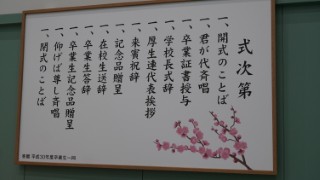 式次第
一、開式のことば
一、君が代斉唱
一、卒業証書授与
一、学校長式辞
一、厚生連代表挨拶
一、来賓祝辞
一、記念品贈呈
一、在校生送辞
一、卒業生答辞
一、卒業生記念品贈呈
一、仰げば尊し斉唱
一、閉式のことば